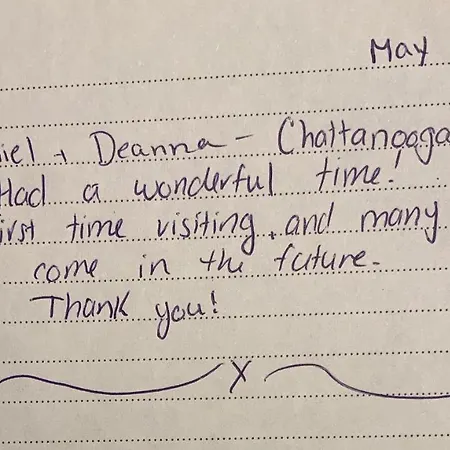 May
iel + Deanna - Chattanooga
Had a wonderful time!
irst time visiting, and many
come in the future.
Thank you!
X